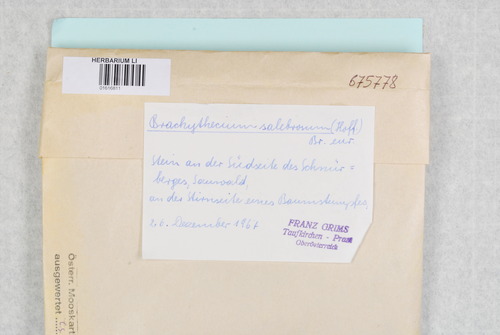 HERBARIUM LI
675778
Brachythecium salebrosum (Hoff)
Br. eur.
Stein an der Südseite des Schnür=
berges, Sauwald,
an der Stirnseite eines Baumstumpfes
Dezember 1967
FRANZ GRIMS
Taufkirchen - Pram
Oberösterreich
Österr. Mooskart
ausgewertet